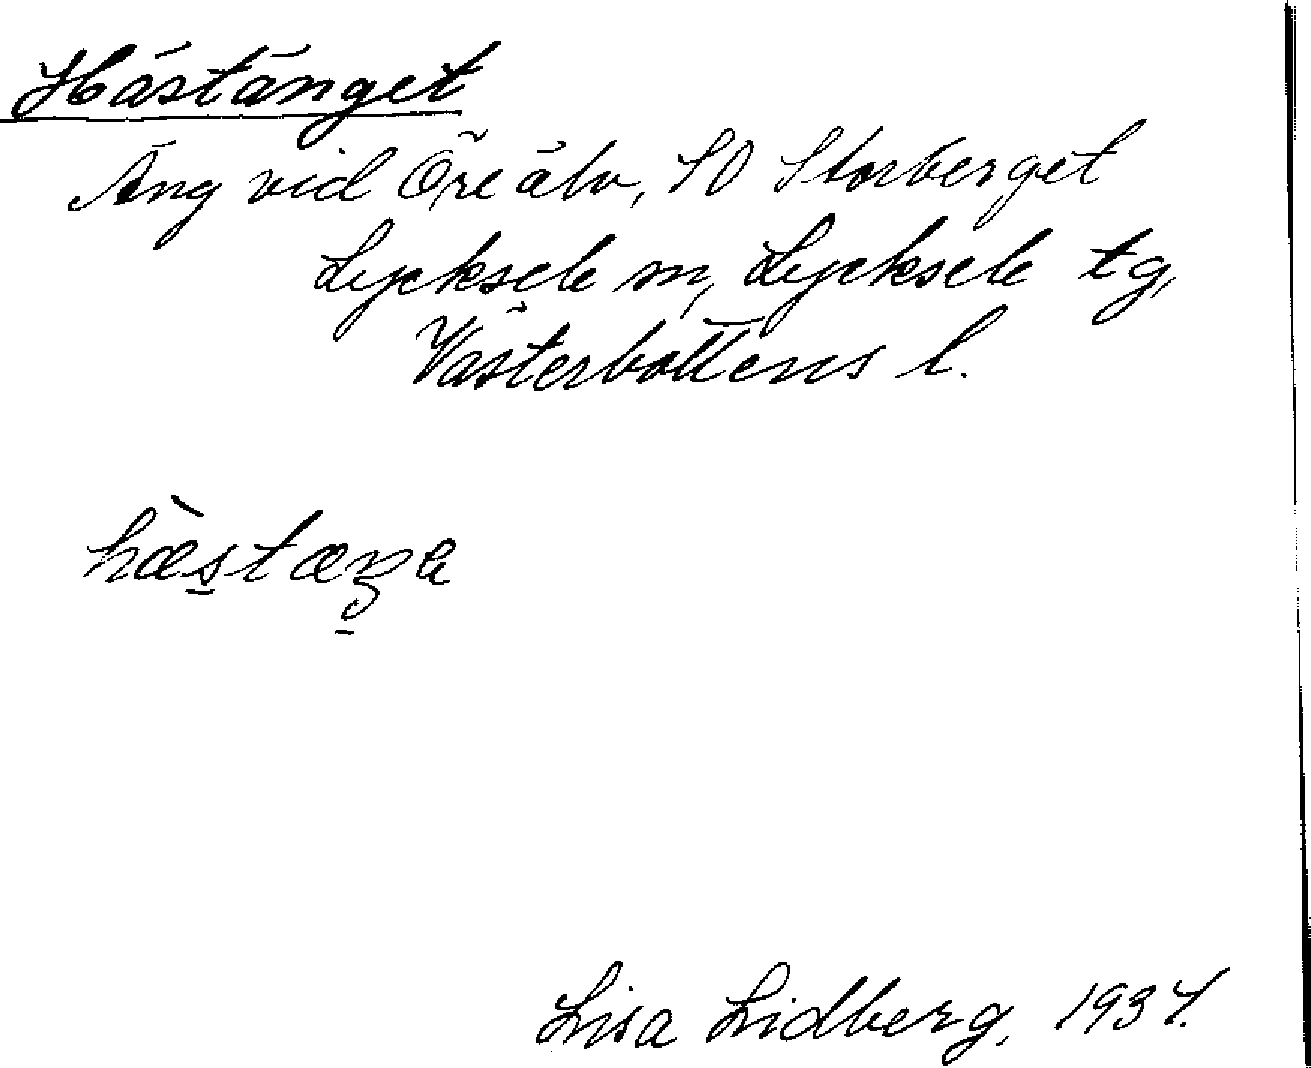 Hästänget
Äng vid Öreälv, SO Storberget
Lycksele m, Lycksele tg,
Västerbottens l.
hæ̀stæŋa
Lisa Lidberg, 1934.